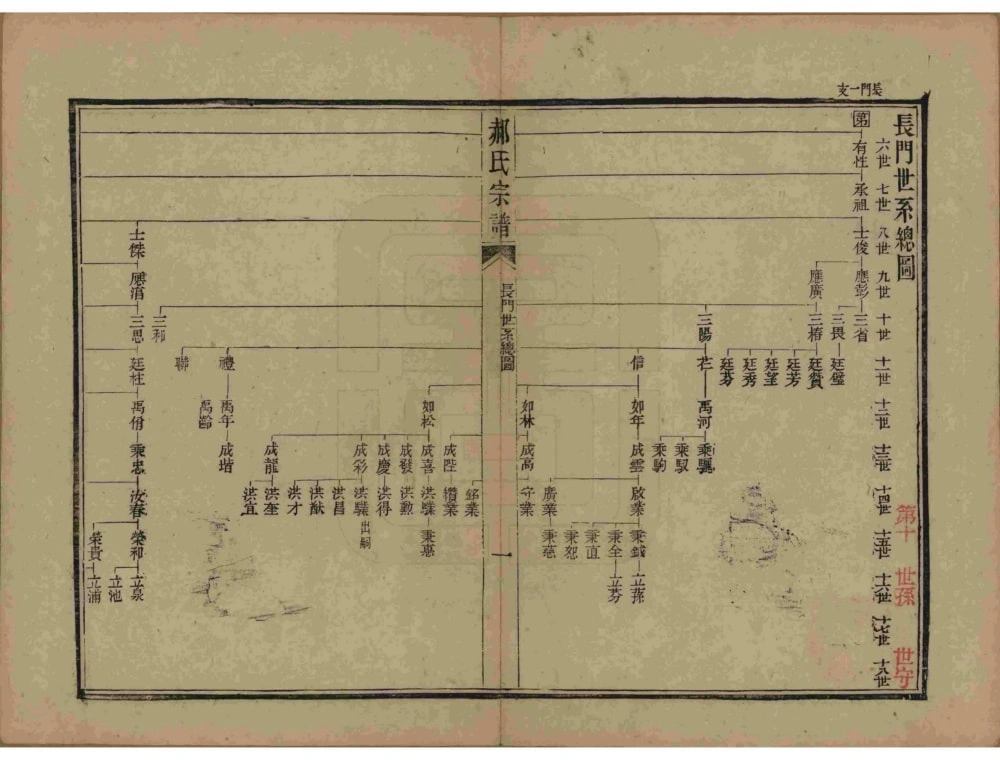 長門一支
長門世系總圖
六世 七世 八世 九世 十世 十一世 十二世 十三世 十四世 十五世 十六世 十七世 十八世
第十 世孫 世守
第
有性 承祖 士俊 應彭 三省
三畏 廷璧
應廣 三椿 廷贊
廷芳
廷望
廷秀
廷芬
三陽 芒 禹河 秉驪
秉馭
秉駒
信 如年 成雲 啟業 秉鐵 立蓀
秉全 立芬
秉直
秉恕
廣業 秉慈
如林 成高 守業
郝氏宗譜
長門世系總圖
一
銘業
成陞 纘業
如松 成喜 洪驥 秉惠
成發 洪勳
成慶 洪得
成彩 洪驥 出嗣
洪昌
洪猷
洪才
成龍 洪奎
洪宜
禮 禹年 成堦
禹齡
聯
三和
士傑 應湄 三思 廷柱 禹偦 秉忠 汝春 榮和 立泉
立池
榮貴 立浦